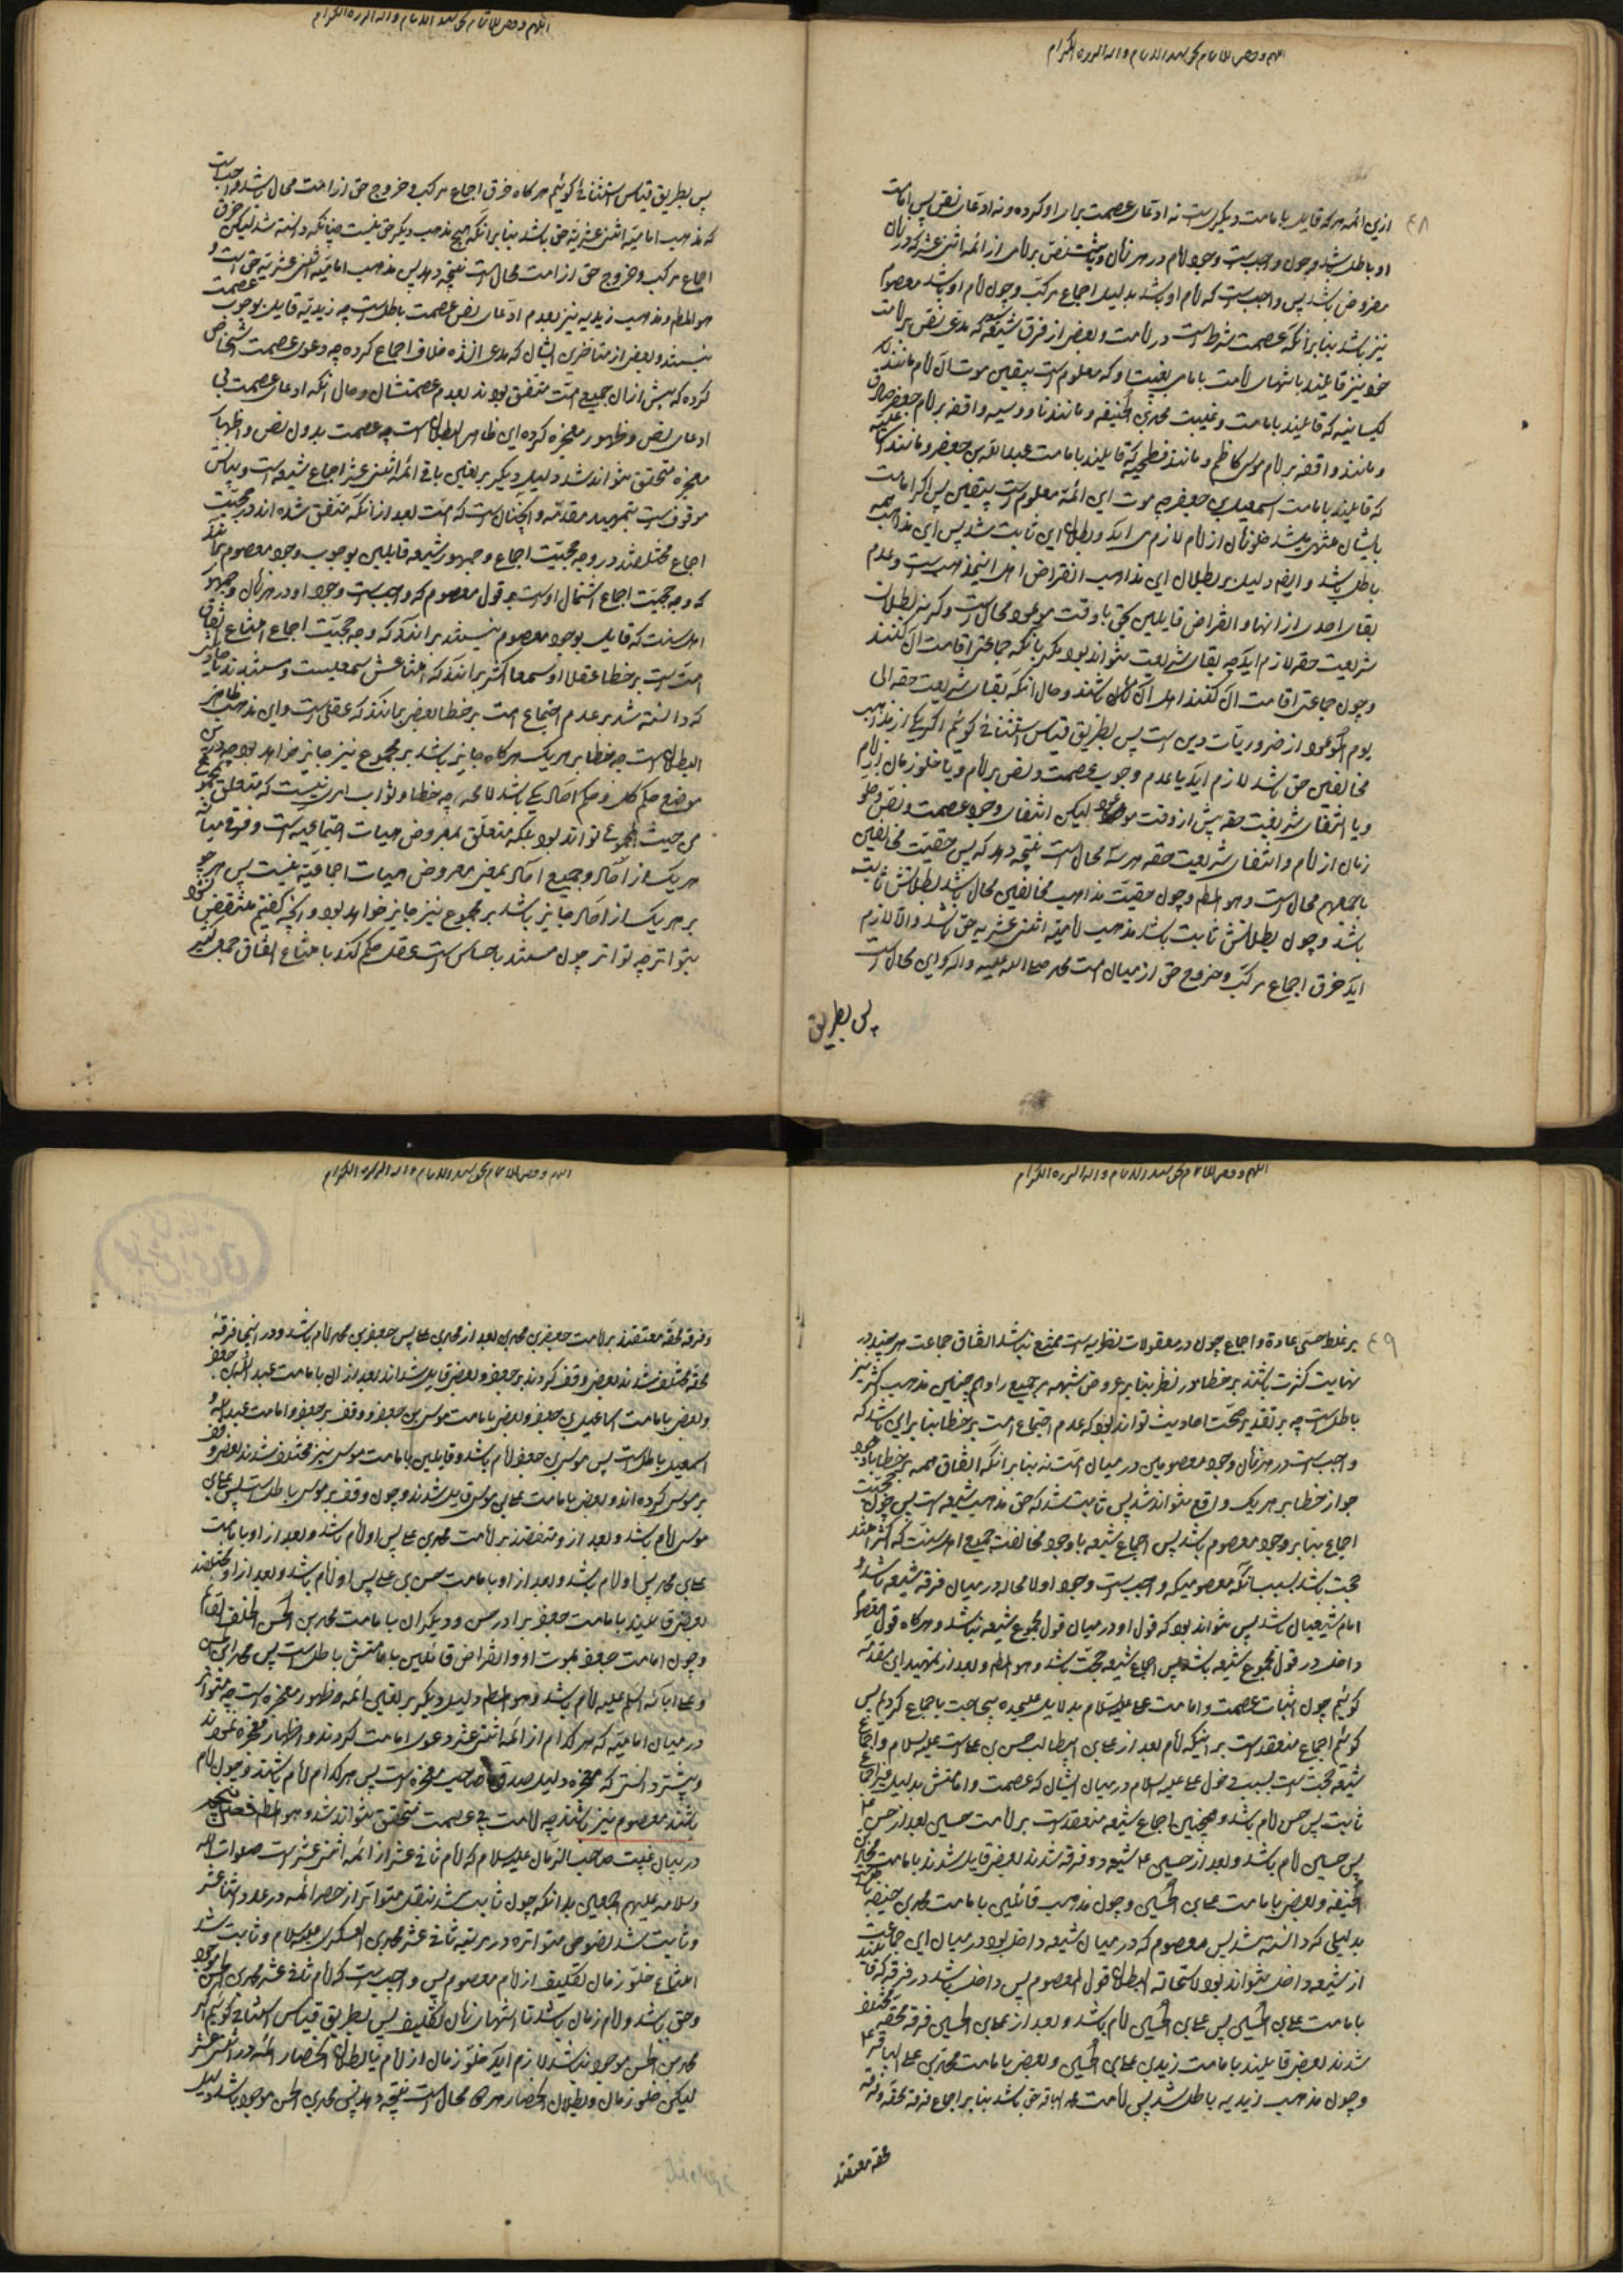 ازین ائمه هر که قایل بامامت دیگریست نه ادعای عصمت برای او کرده و نه ادعای نص پس امامت
او باطل باشد و چون واجبست وجود امام در هر زمان و نص بر امامی از ائمه اثنی عشر که در آن زمان
مفروض باشد پس واجبست که امام او باشد بدلیل اجماع مرکب و چون امام او باشد معصوم
نیز باشد بنابر آنکه عصمت شرط است در امامت و بعضی از فرق شیعه که مدعی نص بر امامت
خود نیز قایلند بانتهای امامت بامامی بغیبت او که معلومست بیقین موت آن امام مانند
کیسانیه که قایلند بامامت و غیبت محمد بن الحنیفه و مانند ناووسیه واقفه بر امام جعفر صادق
و مانند واقفه بر امام موسی کاظم و مانند فطحیه که قایلند بامامت عبدالله بن جعفر و مانند اسماعیلیه
که قایلند بامامت اسمعیل بن جعفر چه موت این ائمه معلومست بیقین پس اگر امامت
بایشان منتهی باشد خلو زمان از امام لازم می آید و بطلان این ثابت شد پس این مذاهب همه
باطل باشد و ایضا دلیل بر بطلان این مذاهب انقراض اهل اینمذاهبست و عدم
بقای احدی از آنها و انقراض قایلین بحق با وقت موعود محال است و گرنه بطلان
شریعت حقه لازم آید چه بقای شریعت نتواند بود مگر بآنکه جماعتی اقامت آن کنند
و چون جماعتی اقامت آن کنند اهل آن باشند و حال آنکه بقای شریعت حقه الی
یوم الموعود از ضروریات دین است پس بطریق قیاس استثنائی گوئیم اگر یکی از مذاهب
مخالفین حق باشد لازم آید یا عدم وجوب عصمت و نص بر امام و یا خلو زمان از امام
و یا انتفای شریعت حقه پیش از وقت موعود لیکن انتفای وجوب عصمت و نص و خلو
زمان از امام و انتفای شریعت حقه هر سه محال است نتیجه دهد که پس حقیت مخالفین
باجمعهم محال است و هو المط و چون حقیت مذاهب مخالفین محال باشد بطلانش ثابت
باشد و چون بطلانش ثابت باشد مذهب امامیه اثنی عشریه حق باشد و الا لازم
آید خرق اجماع مرکب و خروج حق از میان امت محمد صلی الله علیه و آله و این محال است
پس بطریق
پس بطریق قیاس استثنائی گوئیم هر گاه خرق اجماع مرکب و خروج حق از امت محال باشد واجبست
که مذهب امامیه اثنی عشریه حق باشد بنابر آنکه هیچ مذهب دیگر حق نیست چنانکه دانسته شد لیکن خرق
اجماع مرکب و خروج حق از امت محال است نتیجه دهد پس مذهب امامیه اثنی عشریه حق است و
هو المط و مذهب زیدیه نیز بعدم ادعای نص عصمت باطلست چه زیدیه قایل بوجوب عصمت
نیستند و بعضی از متأخرین ایشان که مدعی اند خلاف اجماع کرده چه دعوی عصمت اشخاص
کرده که پیش از آن جمیع امت متفق بودند بعدم عصمتشان و حال آنکه ادعای عصمت بی
ادعای نص و ظهور معجزه کرده این ظاهر البطلانست چه عصمت بدون نص و اظهار
معجزه متحقق نتواند شد دلیل دیگر بر تعیین باقی ائمه اثنی عشر اجماع شیعه است و بیانش
موقوفست بتمهید مقدمه و آنچنانست که امت بعد از آنکه متفق شده اند در حجیت
اجماع مختلفند در وجه حجیت اجماع و جمهور شیعه قایلین بوجوب وجود معصوم برآنند
که وجه حجیت اجماع اشتمال اوست بر قول معصوم که واجبست وجود او در هر زمان و جمهور
اهل سنت که قایل بوجود معصوم نیستند برآنند که وجه حجیت اجماع امتناع اتفاق
امت است بر خطا عقلا او سمعا اکثر برآنند که امتناعش سمعیست و مستند
که دانسته شد بر عدم اجتماع امت بر خطا و بعضی برآنند که عقلی است و این مذهب ظاهر
البطلانست چه خطا بر هر یک هر گاه جایز باشد بر مجموع نیز جایز خواهد بود چه درین
موضع حکم کل و حکم آحاد یکی باشد لا محاله چه خطا و ثواب امری نیست که متعلق بمجموع
من حیث المجموع تواند بود بلکه متعلق بمعروض هیات اجتماعیه است و فرقی میانه
هر یک از آحاد و جمیع آحاد بمعنی معروض هیات اجتماعیه نیست پس هر چه
بر هر یک از آحاد جایز باشد بر مجموع نیز جایز خواهد بود و آنچه گفتیم منتقض نشود
بتواتر چه تواتر چون مستند باحساس است عقل حکم کند بامتناع اتفاق جمعی کثیر
بر غلط حسی عادة و اجماع چون در معقولات نظریه است ممتنع نباشد اتفاق جماعت هر چند در
نهایت کثرت باشند بر خطا در نظر بنابر عروض شبهه بر جمیع را و همچنین مذهب اکثر نیز
باطلست چه بر تقدیر صحت احادیث تواند بود که عدم اجتماع امت بر خطا بنابر این باشد که
واجبست در هر زمان وجود معصومین در میان امت نه بنابر آنکه اتفاق همه بر خطا با وجود
جواز خطا بر هر یک واقع نتواند شد پس ثابت شد که حق مذهب شیعه است پس چون حجیت
اجماع بنابر وجود معصوم باشد پس اجماع شیعه با وجود مخالفت جمیع اهل سنت که اکثر امتند
حجت باشد بسبب آنکه معصومیکه واجبست وجود او لا محاله در میان فرقه شیعه باشد و
امام شیعیان باشد پس نتواند بود که قول او در میان قول مجموع شیعه نباشد و هر گاه قول معصوم
داخل در قول مجموع شیعه باشد پس اجماع شیعه حجت باشد و هو المط و بعد از تمهید این مقدمه
گوئیم چون اثبات عصمت و امامت علی علیه السلام بدلایل علیحده بی حاجت باجماع کردیم پس
گوئیم اجماع منعقدست بر اینکه امام بعد از علی بن ابیطالب حسن بن علی است علیه السلام و اجماع
شیعه حجت است بسبب دخول علی علیه السلام در میان ایشان که عصمت و امامتش بدلیل غیر اجماع
ثابت پس حسن امام باشد و همچنین اجماع شیعه منعقدست بر امامت حسین بعد از حسن ع
پس حسین امام باشد و بعد از حسین ع شیعه دو فرقه شدند بعضی قایل شدند بامامت محمد بن
الحنیفه و بعضی بامامت علی بن الحسین و چون مذهب قائلین بامامت محمد بن حنیفه باطل
بدلیلی که دانسته شد پس معصوم که در میان شیعه داخل بود در میان این جماعت
از شیعه داخل نتواند بود لاستحالة البطلان قول المعصوم پس داخل باشد در فرقه که قایلند
بامامت علی بن الحسین پس علی بن الحسین امام باشد و بعد از علی بن الحسین فرقه محقه مختلف
شدند بعضی قایلند بامامت زید بن علی بن الحسین و بعضی بامامت محمد بن علی الباقر ع
و چون مذهب زیدیه باطل شد پس امامت محمد الباقر حق باشد بنابر اجماع فرقه محقه و فرقه
محقه معتقدند
و فرقه محقه معتقدند بر امامت جعفر بن محمد بعد از محمد بن علی پس جعفر بن محمد امام باشد و در اینجا فرقه
محقه مختلف شدند بعضی وقف کردند بر جعفر و بعضی قایل شدند بعد از آن بامامت عبدالله بن جعفر
و بعضی بامامت اسماعیل بن جعفر و بعضی بامامت موسی بن جعفر و وقف بر جعفر و امامت عبدالله و
اسمعیل باطلست پس موسی بن جعفر امام باشد و قایلین بامامت موسی نیز مختلف شدند بعضی وقف
بر موسی کرده اند و بعضی بامامت علی بن موسی قایل شدند و چون وقف بر موسی باطلست پس علی بن
موسی امام باشد و بعد از و متفقند بر امامت محمد بن علی پس او امام باشد و بعد از او بامامت
علی بن محمد پس او امام باشد و بعد از او بامامت حسن بن علی پس او امام باشد و بعد از او مختلفند
بعضی قایلند بامامت جعفر برادر حسن و دیگران بامامت محمد بن الحسن الخلف القائم
و چون امامت جعفر بموت او و انقراض قائلین بامامتش باطلست پس محمد بن الحسن
و علی آبائه السلم علیه امام باشد و هو المط دلیل دیگر بر تعیین ائمه ظهور معجزه است چه متواتر
در میان امامیه که هر کدام از ائمه اثنی عشر دعوی امامت کردند و اظهار معجزه نمودند
و پیشتر دانستی که معجزه دلیل صدق صاحب معجزه است پس هر کدام امام باشند و چون امام
باشند معصوم نیز باشند چه امامت بی عصمت متحقق نتواند شد و هو المط فصل پنجم
در بیان غیبت صاحب الزمان علیه السلام که امام ثانی عشر از ائمه اثنی عشر است صلوات الله
و سلامه علیهم اجمعین بدانکه چون ثابت شد بنقل متواتر از حصر ائمه در عدد اثنا عشر
و ثابت شد نصوص متواتره در مرتبه ثانی عشر محمد بن العسکری علیه السلام و ثابت شد
امتناع خلو زمان تکلیف از امام معصوم پس واجبست که امام ثانی عشر محمد بن الحسن موجود
و حی باشد و امام زمان باشد تا انتهای زمان تکلیف پس بطریق قیاس استثنائی گوئیم اگر
محمد بن الحسن موجود نباشد لازم آید خلو زمان از امام یا بطلان انحصار ائمه در اثنی عشر
لیکن خلو زمان و بطلان انحصار هر دو محال است نتیجه دهد پس محمد بن الحسن موجود باشد دلیل